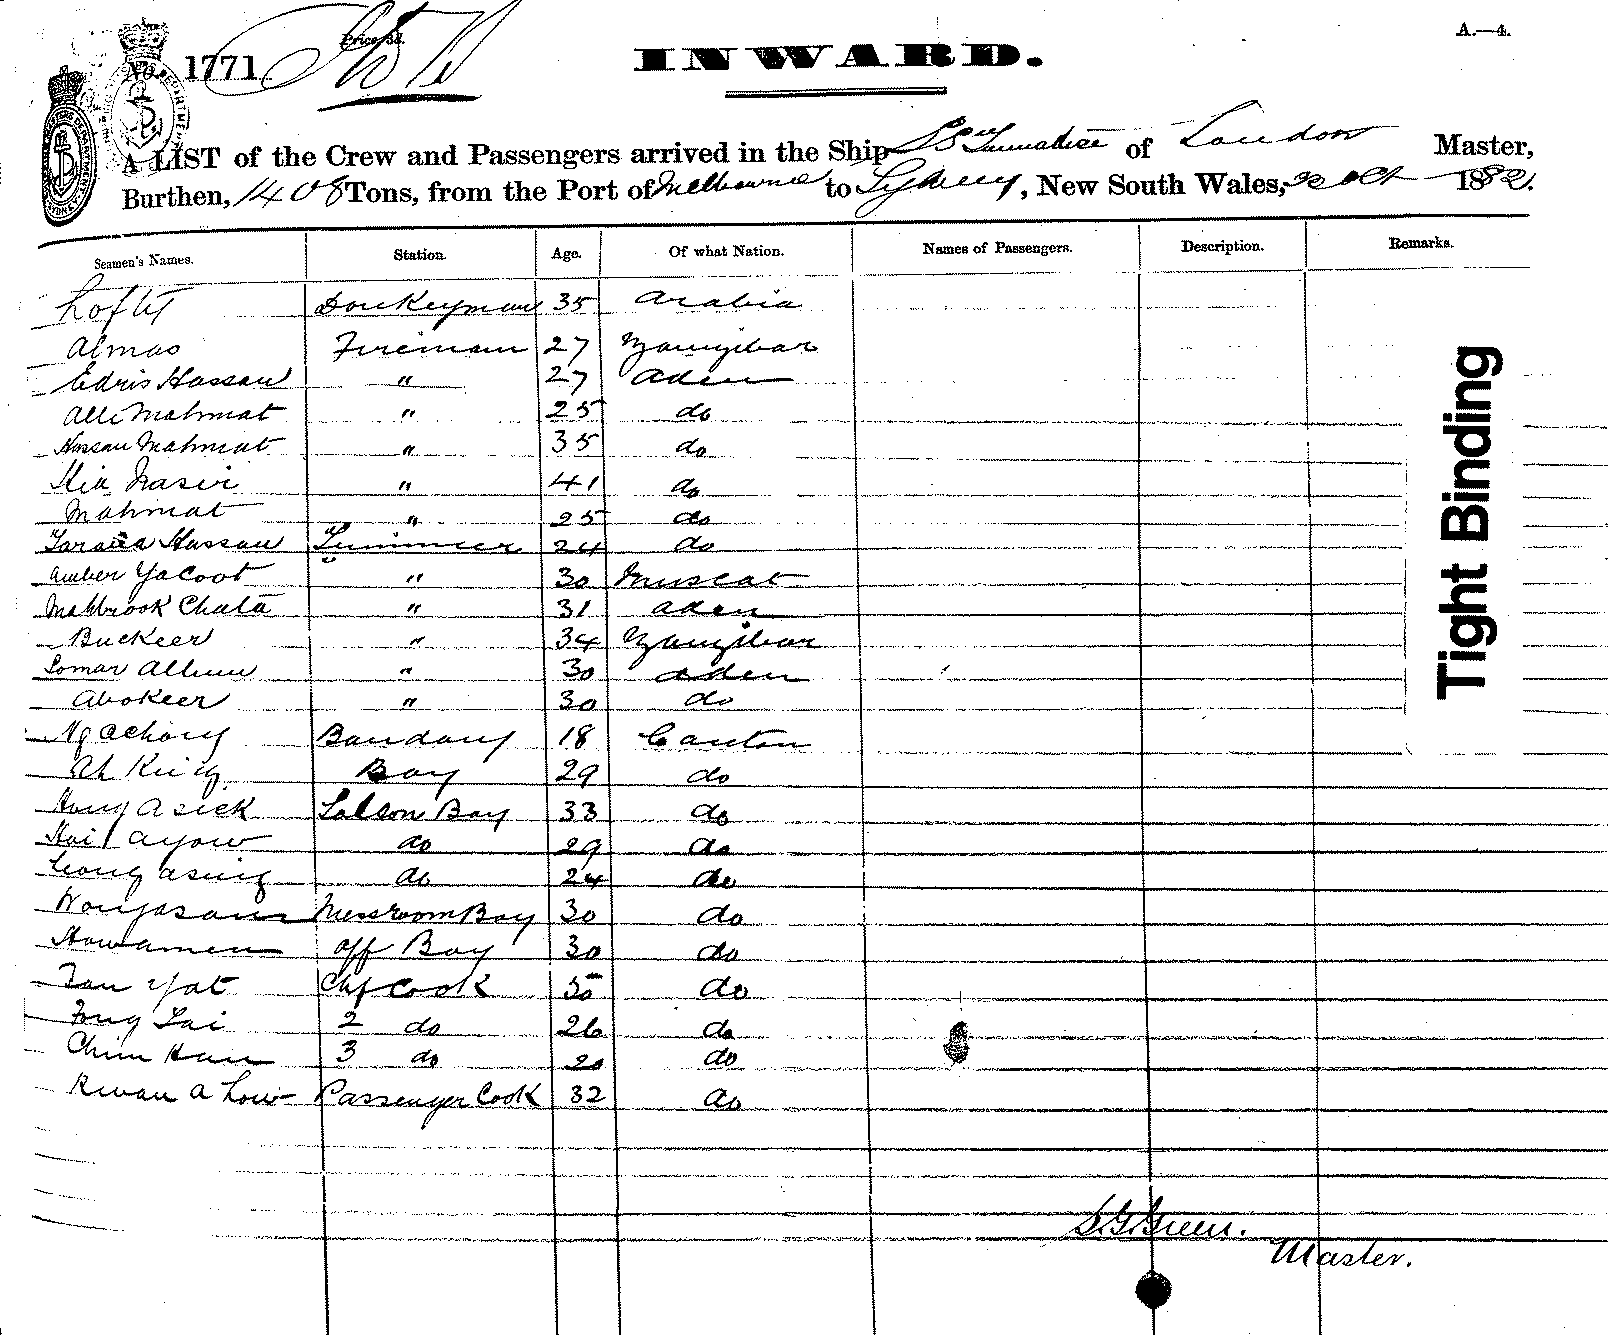 A.—4.
Price 3d.
No. 1771
INWARD.
A LIST of the Crew and Passengers arrived in the Ship SS of London Master,
Burthen, 1408 Tons, from the Port of Melbourne to Sydney, New South Wales, 22 Oct 1882.
Seamen's Names. Station. Age. Of what Nation. Names of Passengers. Description. Remarks.
Lofty Donkeyman 35 Arabia
Almas Fireman 27 Zanzibar
Edris Hassan " 27 Aden
Alli Mahmat " 25 do
Hassan Mahmat " 35 do
Nasir " 41 do
Mahmat " 25 do
Hassan Trimmer 24 do
Amber Yacoot " 30 Muscat
Mahbrook " 31 Aden
Buckeer " 34 Zanzibar
" 30 Aden
Abokeer " 30 do
Ng Achong 18 Canton
Ah King Boy 29 do
Hong Asick Saloon Boy 33 do
Ayow do 29 do
Leong Asing do 24 do
Messroom Boy 30 do
Howamen Off Boy 30 do
Tan Yat Chf Cook do
Fong Tai 2 do 26 do
Chim 3 do 20 do
Kwan A Low Passenger Cook 32 do
Green.
Master.
Tight Binding